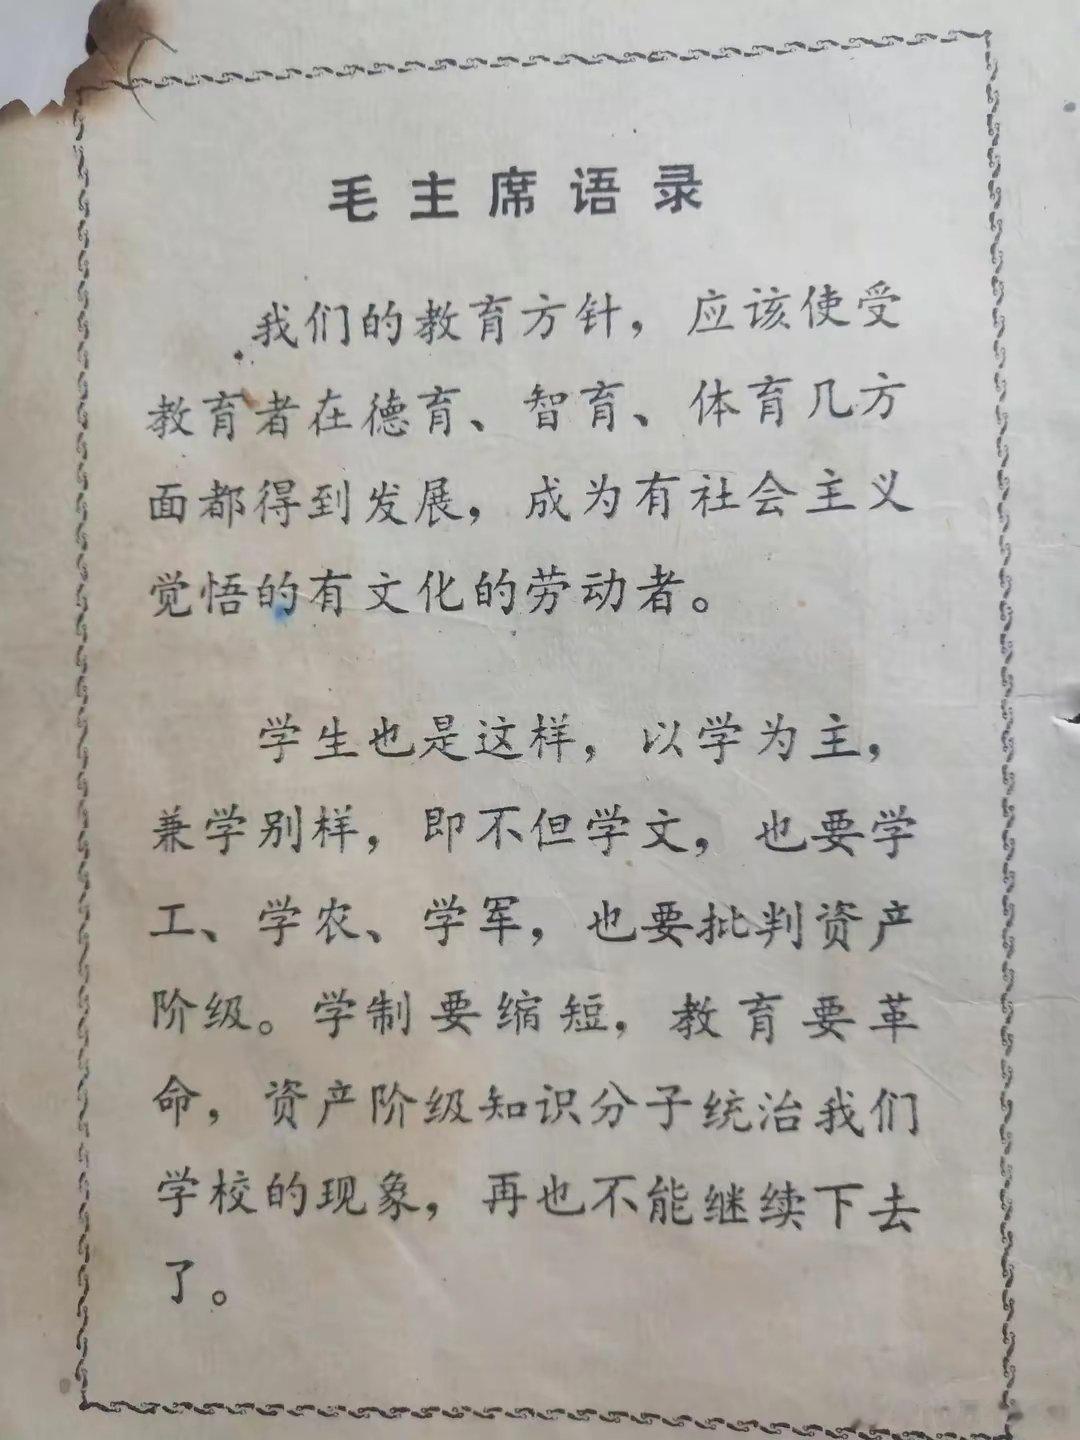 毛主席语录
我们的教育方针，应该使受
教育者在德育、智育、体育几方
面都得到发展，成为有社会主义
觉悟的有文化的劳动者。
学生也是这样，以学为主，
兼学别样，即不但学文，也要学
工、学农、学军，也要批判资产
阶级。学制要缩短，教育要革
命，资产阶级知识分子统治我们
学校的现象，再也不能继续下去
了。